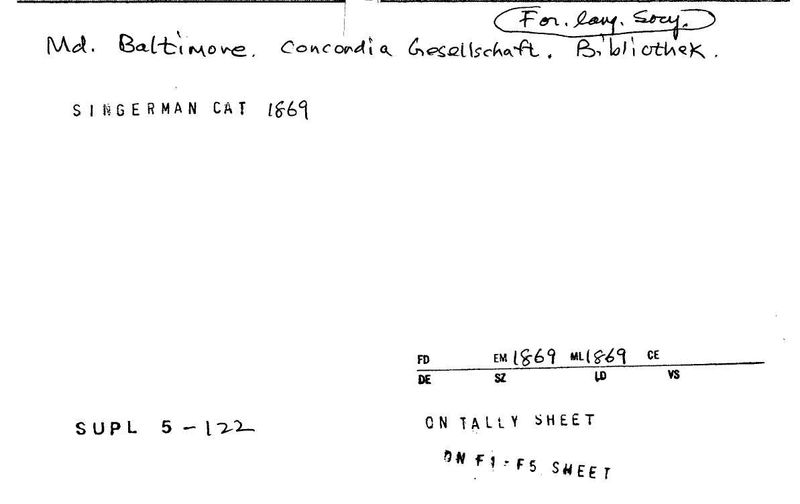 For. lang. Socy.
Md. Baltimore. Concordia Gesellschaft. Bibliothek.
SINGERMAN CAT 1869
FD EM 1869 ML 1869 CE
DE SZ LD VS
SUPL 5-122
ON TALLY SHEET
ON F1-F5 SHEET